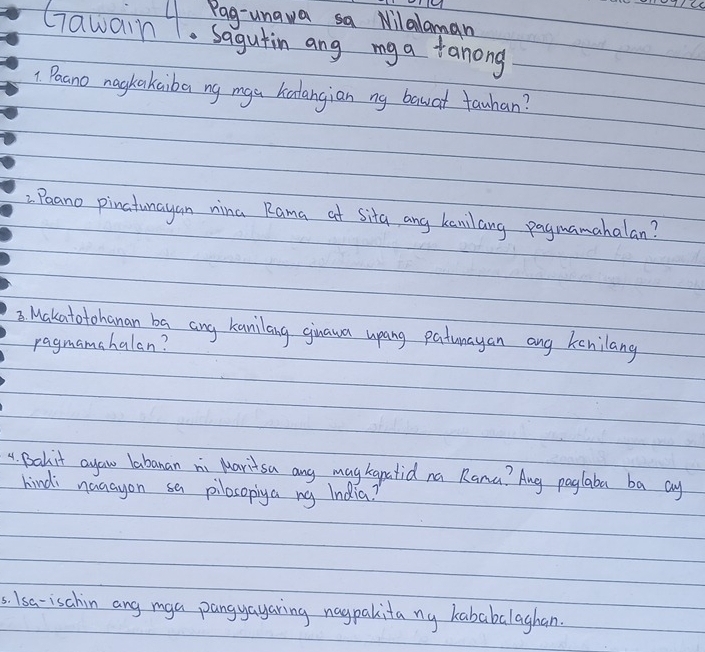 Gawain 4. Pag-unawa sa Nilalaman
Sagutin ang mga tanong
1. Paano nagkakaiba ng mga katangian ng bawat tauhan?
2. Paano pinatunayan nina Rama at Sita ang kanilang pagmamahalan?
3. Makatotohanan ba ang kanilang ginawa upang patunayan ang kanilang
pagmamahalan?
4. Bakit ayaw labanan ni Maritsa ang magkapatid na Rama? Ang paglaba ba ay
hindi naaayon sa pilosopiya ng India?
5. Isa-isahin ang mga pangyayaring nagpakita ng kababalaghan.